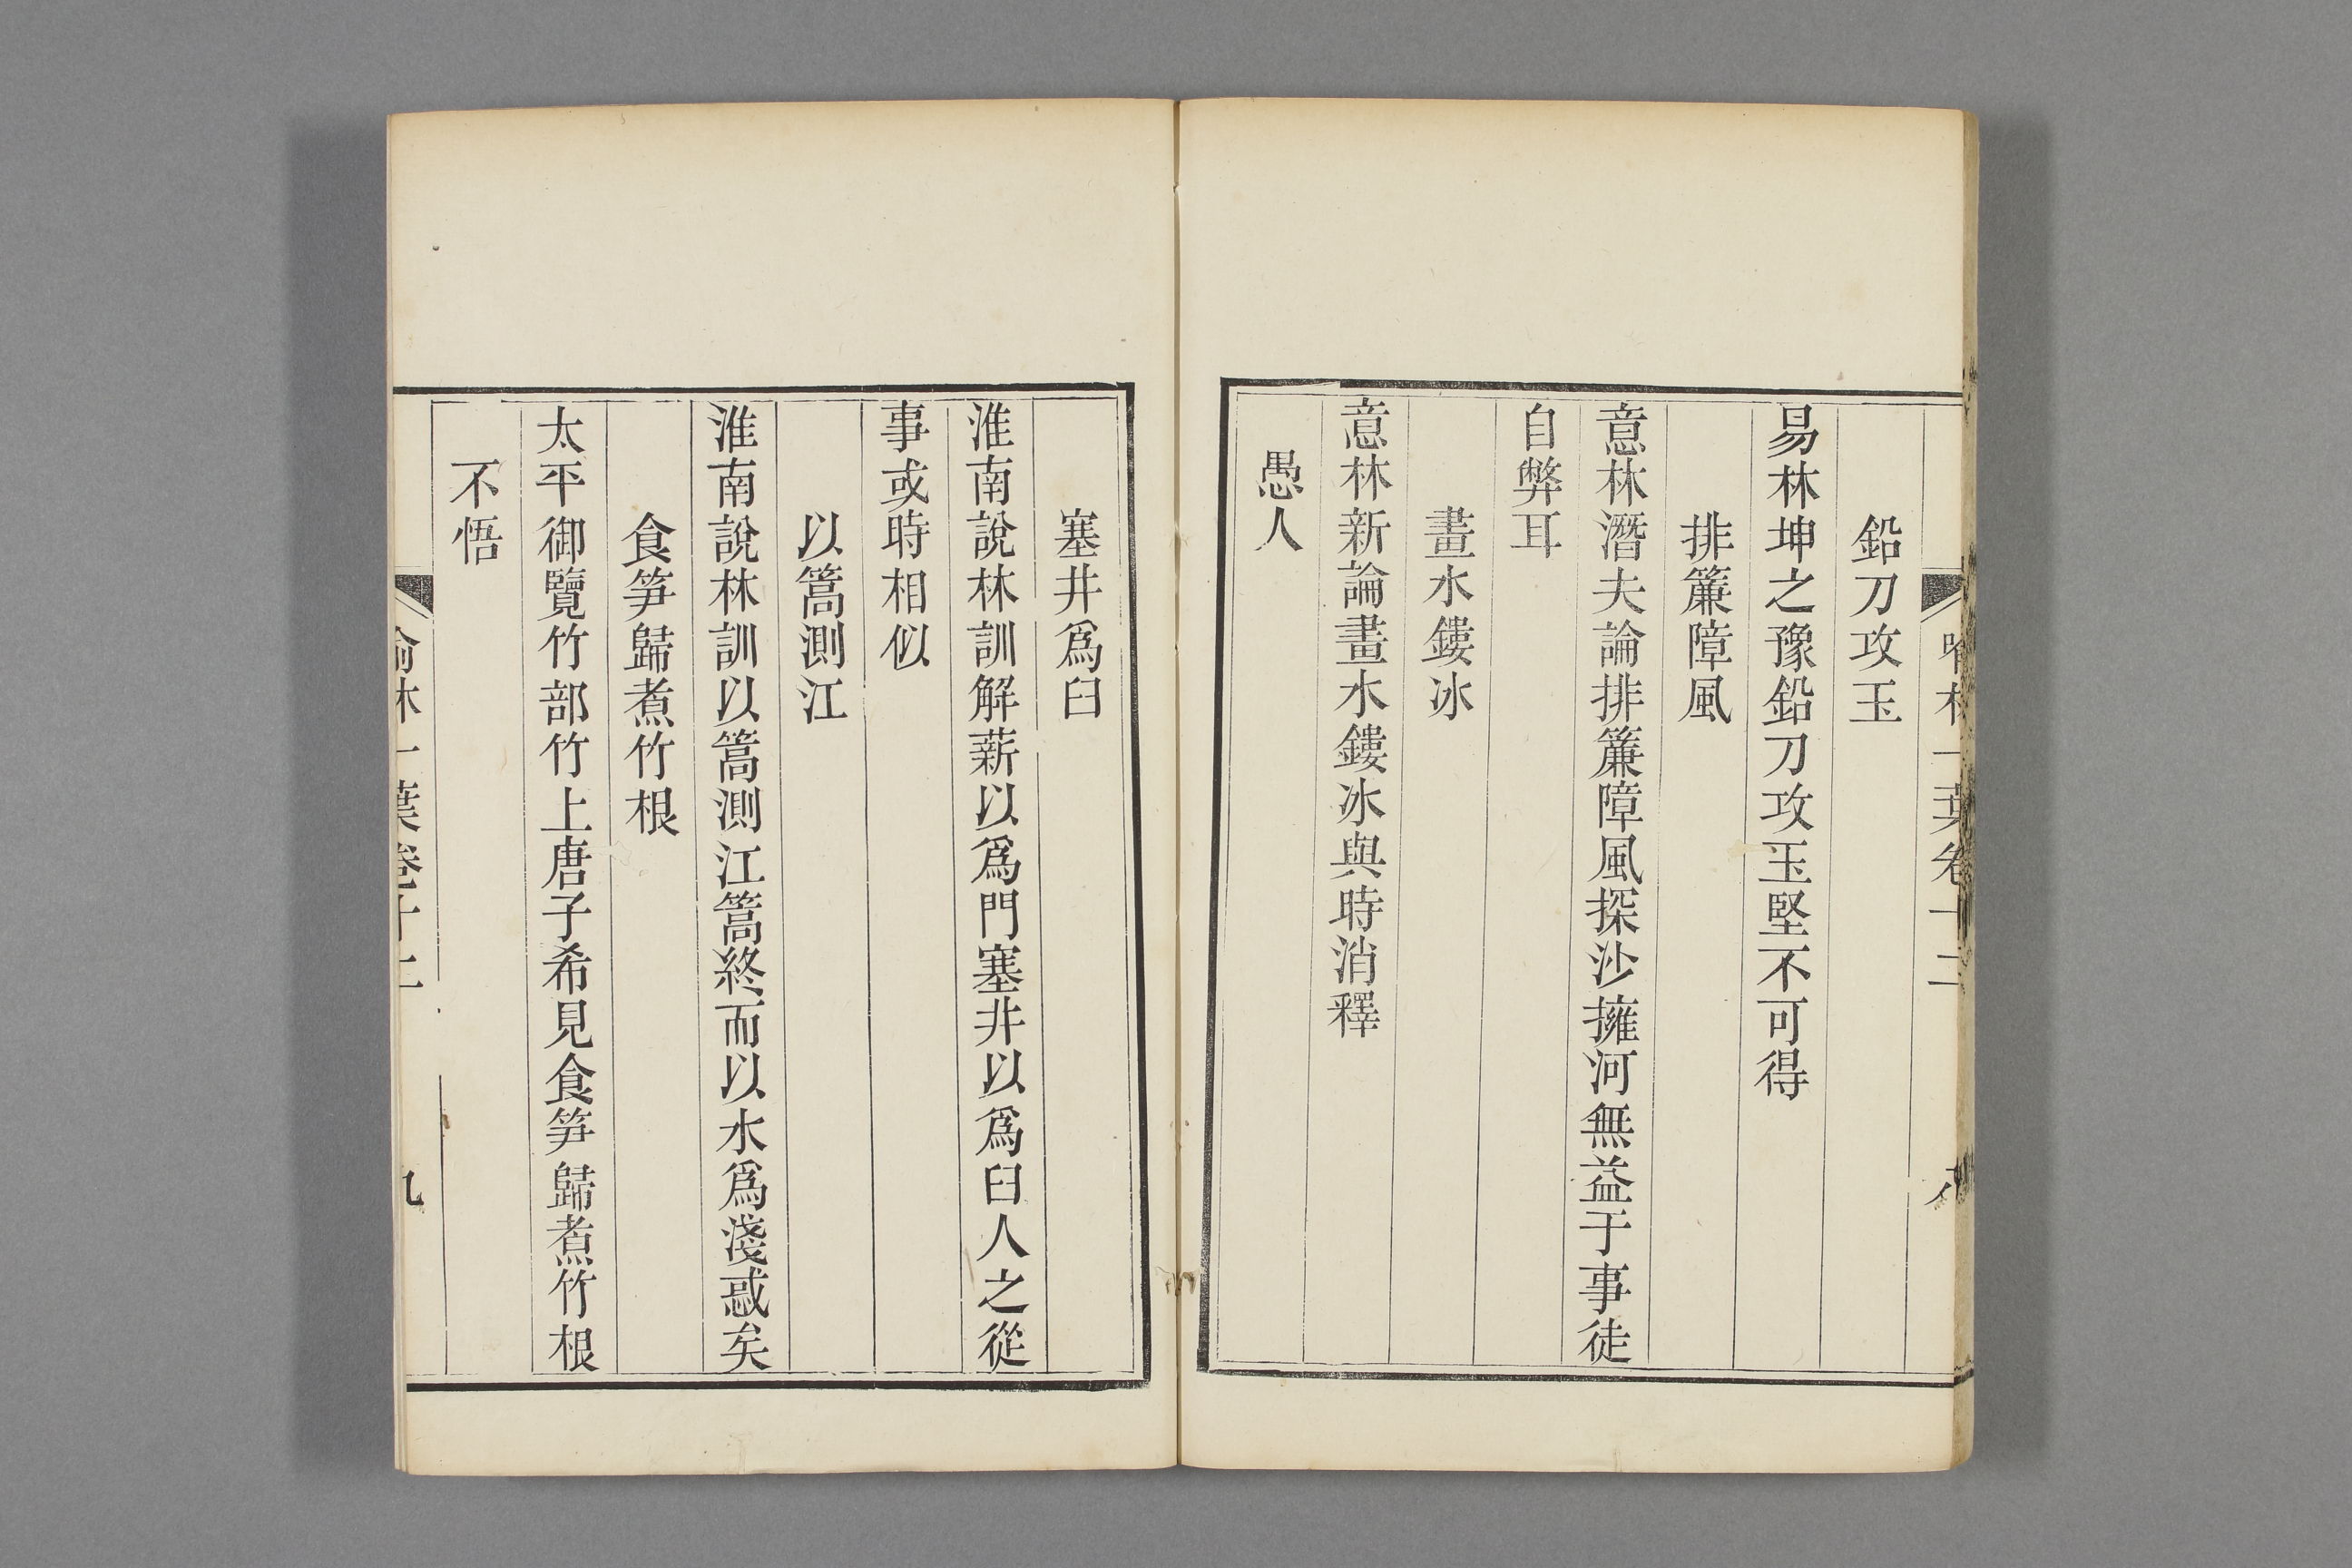 鉛刀攻玉
易林坤之豫鉛刀攻玉堅不可得
排簾障風
意林潛夫論排簾障風探沙擁河無益于事徒
自弊耳
畫水鏤冰
意林新論畫水鏤冰與時消釋
愚人
塞井爲臼
淮南說林訓解薪以爲門塞井以爲臼人之從
事或時相似
以篙測江
淮南說林訓以篙測江篙終而以水爲淺惑矣
食笋歸煮竹根
太平御覽竹部竹上唐子希見食笋歸煮竹根
不悟
喻林一葉卷十二
九